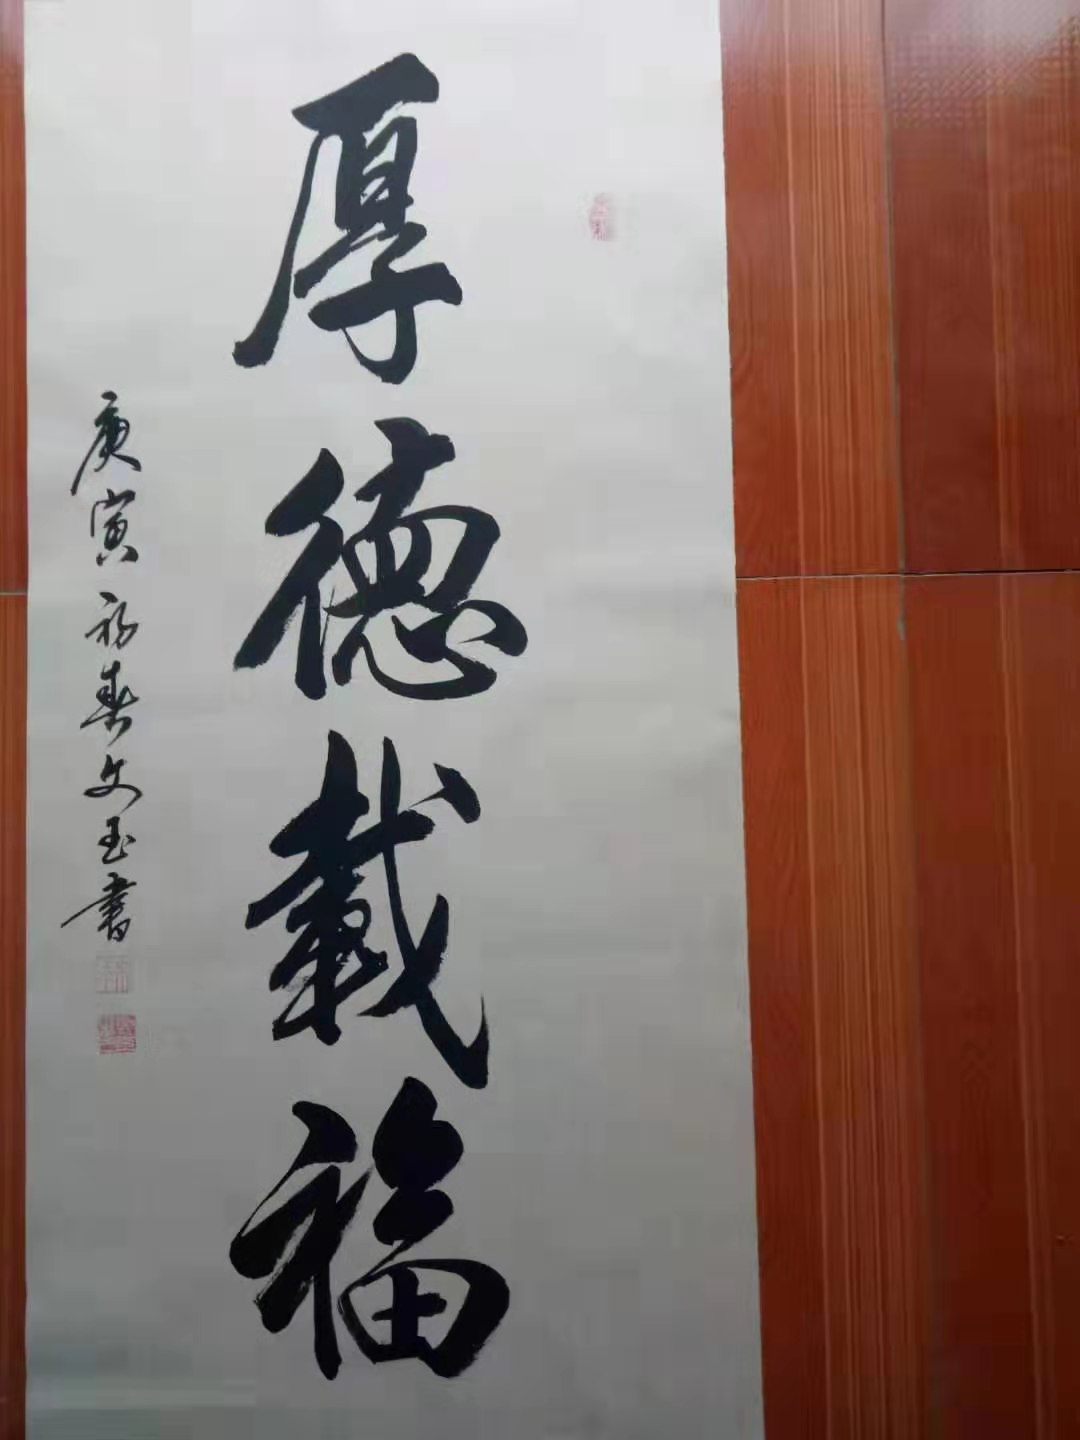 厚德載福
庚寅初春文玉書